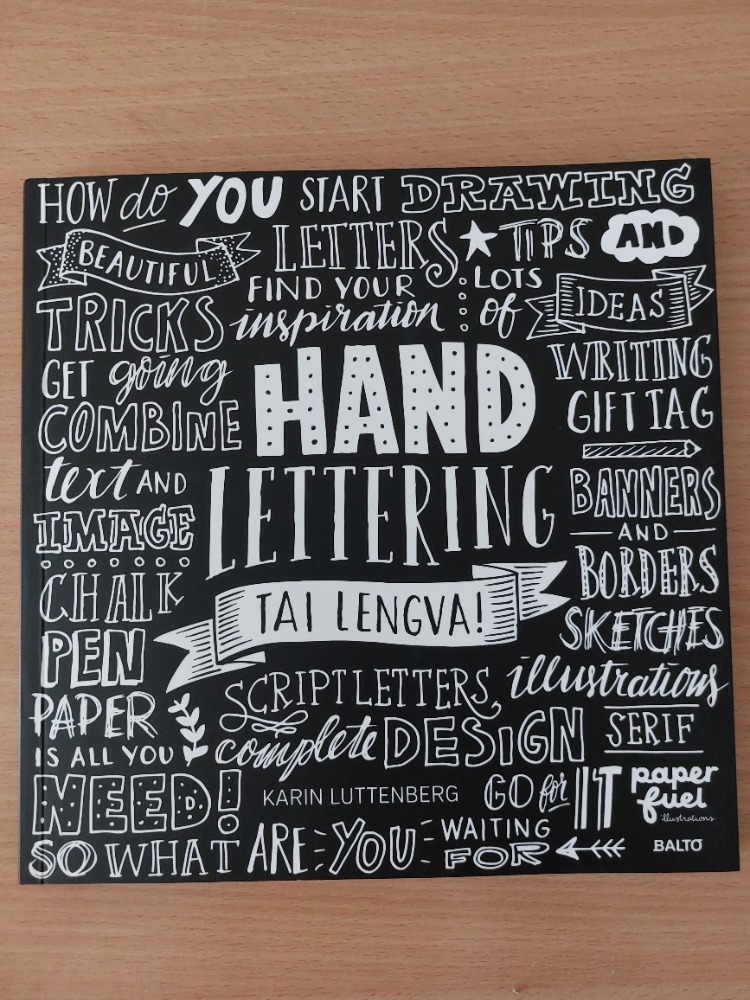 HOW do YOU START DRAWING
BEAUTIFUL LETTERS TIPS AND
TRICKS FIND YOUR inspiration LOTS of IDEAS
GET going
COMBINE
text AND
IMAGE
CHALK
PEN
PAPER
IS ALL YOU
NEED!
HAND
LETTERING
TAI LENGVA!
WRITING
GIFT TAG
BANNERS
AND
BORDERS
SKETCHES
SCRIPT LETTERS, illustrations
complete DESIGN SERIF
KARIN LUTTENBERG
GO for IT
paper
fuel
illustrations
SO WHAT ARE YOU WAITING FOR
BALTO